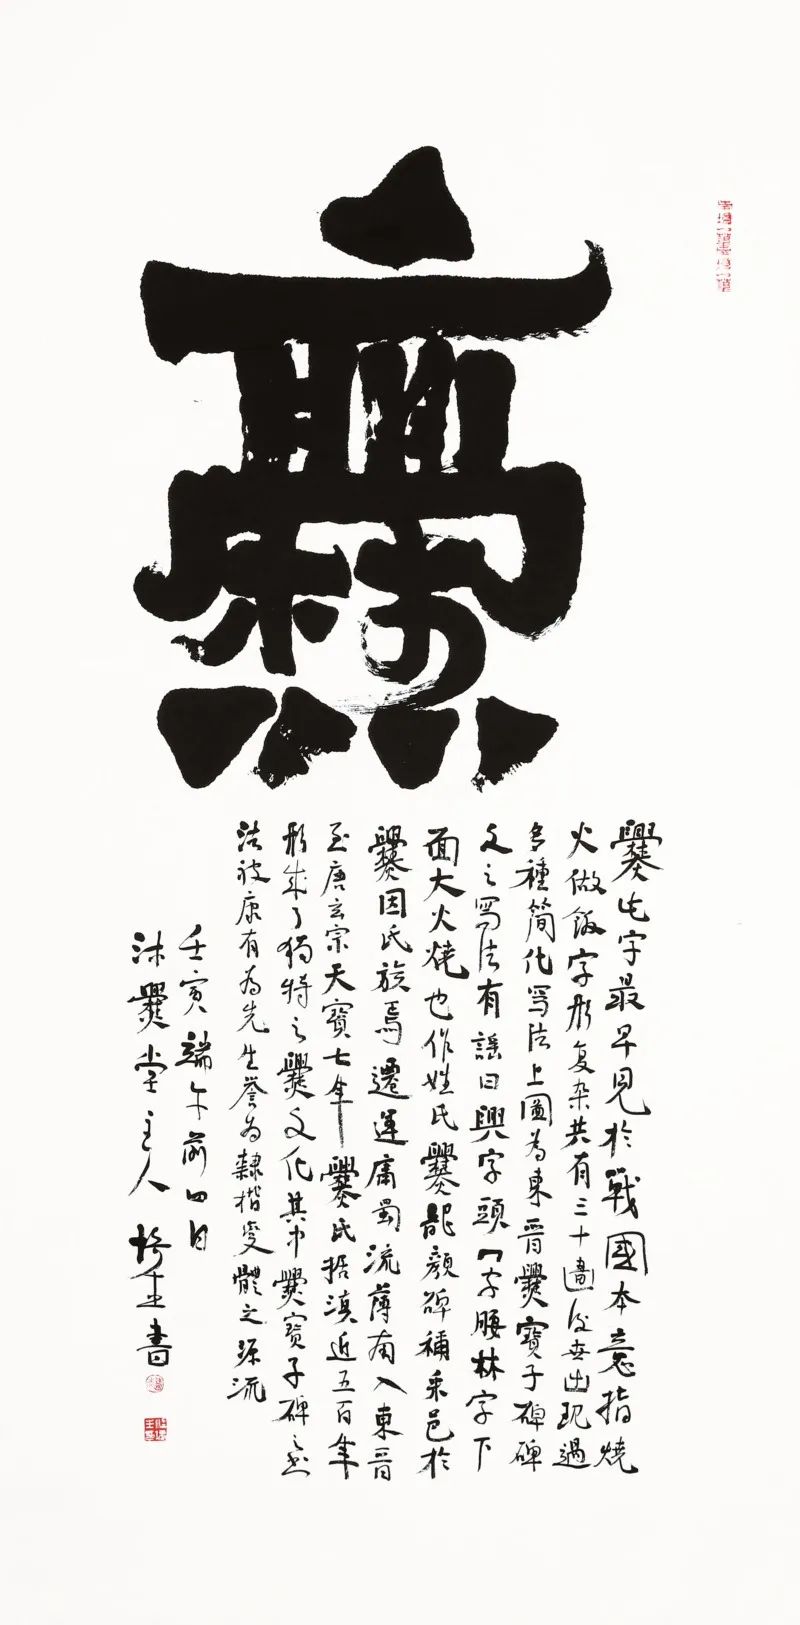 爨
爨此字最早見於戰國本意指燒
火做飯字形复杂共有三十畫後世出現過
多種简化写法上圖為東晋爨寶子碑碑
文之写法有謡曰興字頭冖字腰林字下
面大火燒也作姓氏爨龍顔碑稱采邑於
爨因氏族焉遷運庸蜀流薄南入東晋
至唐玄宗天寶七年爨氏据滇近五百年
形成了獨特之爨文化其中爨寶子碑之書
法被康有為先生誉為隸楷变體之源流
壬寅端午前四日
沐爨堂主人
書